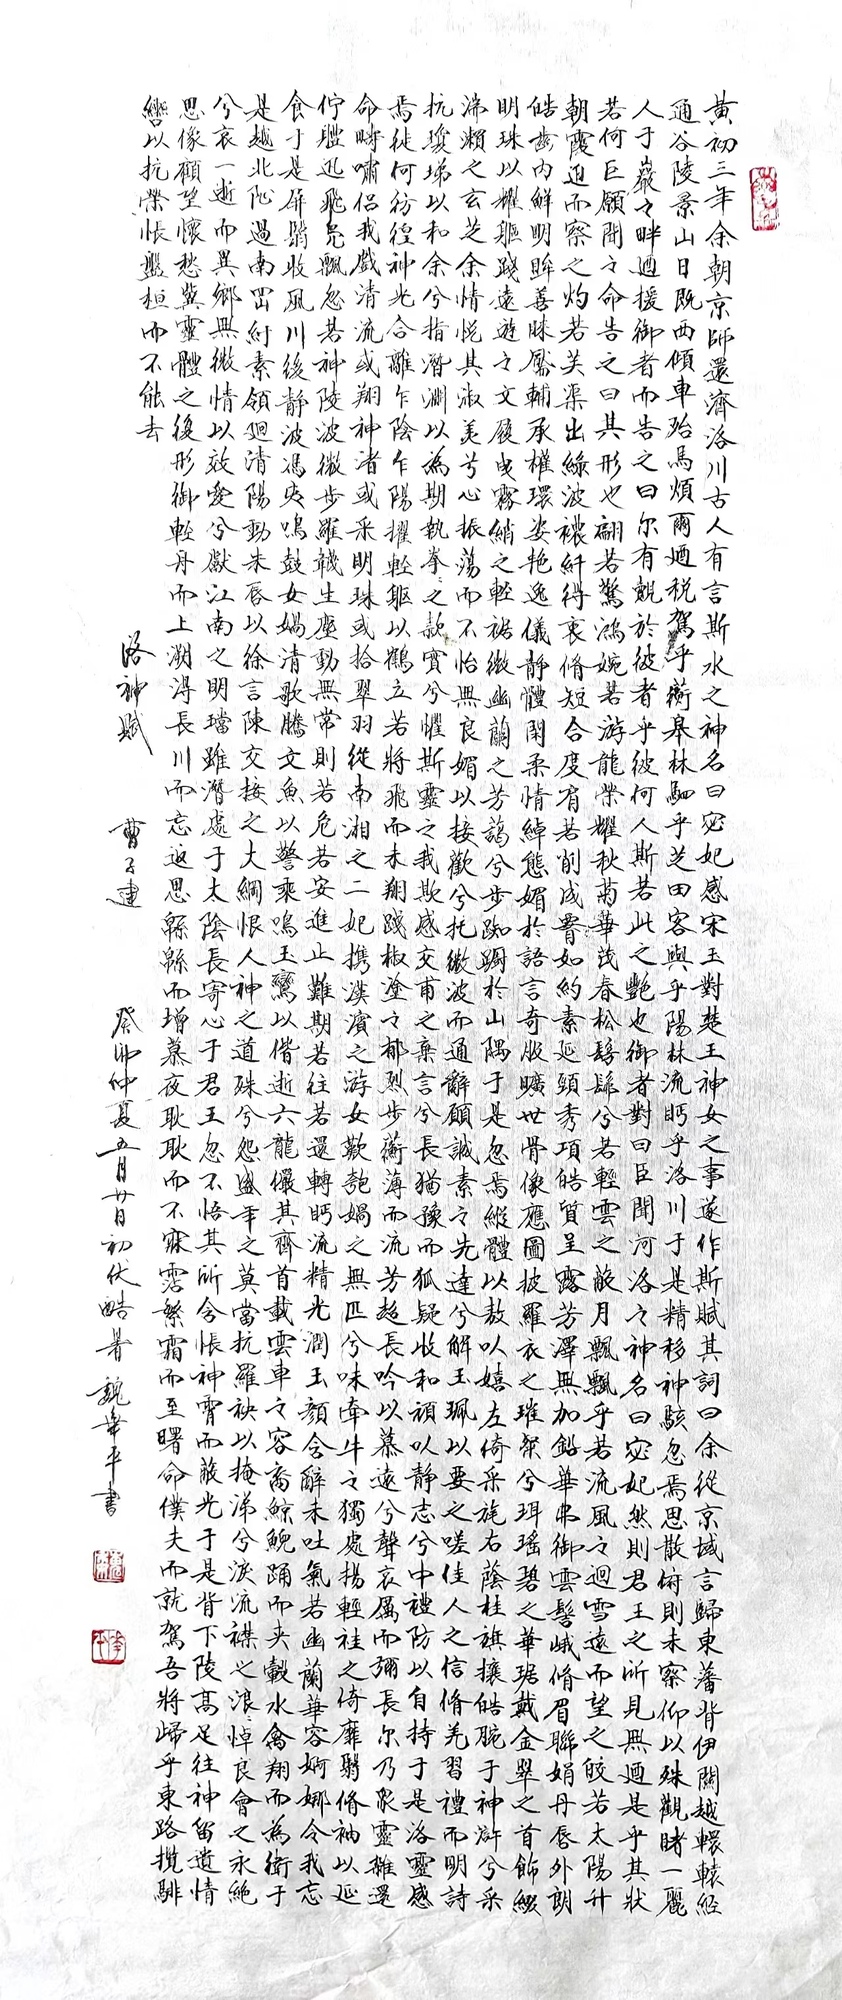 黃初三年余朝京師還濟洛川古人有言斯水之神名曰宓妃感宋玉對楚王神女之事遂作斯賦其詞曰余從京域言歸東藩背伊闕越轘轅經
通谷陵景山日既西傾車殆馬煩爾迺税駕乎蘅皋秣駟乎芝田容與乎陽林流眄乎洛川于是精移神駭忽焉思散俯則未察仰以殊觀睹一麗
人于巖之畔迺援御者而告之曰尔有覿於彼者乎彼何人斯若此之艷也御者對曰臣聞河洛之神名曰宓妃然則君王之所見無迺是乎其狀
若何臣願聞之命告之曰其形也翩若驚鴻婉若游龍榮耀秋菊華茂春松髣髴兮若輕雲之蔽月飄飄乎若流風之迴雪遠而望之皎若太陽升
朝霞迫而察之灼若芙渠出綠波襛纖得衷脩短合度肩若削成署如約素延頸秀項皓質呈露芳澤無加鉛華弗御雲髻峨峨脩眉聯娟丹唇外朗
皓齒内鮮明眸善睞靨輔承權環姿艳逸儀靜體閑柔情綽態媚於語言奇服曠世骨像應圖披羅衣之璀粲兮珥瑶碧之華琚戴金翠之首飾綴
明珠以耀軀踐遠遊之文履曳霧綃之輕裾微幽蘭之芳藹兮步踟躕於山隅于是忽焉縱體以敖以嬉左倚采旄右蔭桂旗攘皓腕于神滸兮采
湍瀨之玄芝余情悅其淑美兮心振蕩而不怡無良媚以接歡兮托微波而通辭願誠素之先達兮解玉珮以要之嗟佳人之信脩羌習禮而明詩
抗瓊珶以和余兮指潛淵以為期執拳拳之款實兮懼斯靈之我欺感交甫之棄言兮長猶豫而狐疑收和顔以靜志兮申禮防以自持于是洛靈感
焉徙倚彷徨神光合離乍陰乍陽擢輕軀以鶴立若將飛而未翔踐椒塗之郁烈步蘅薄而流芳超長吟以慕遠兮聲哀厲而彌長尔乃衆靈雜還
命疇嘯侶或戲清流或翔神渚或采明珠或拾翠羽從南湘之二妃携漢濱之游女歎匏媧之無匹兮咏牽牛之獨處揚輕袿之倚靡翳脩袖以延
佇體迅飛鳧飄忽若神陵波微步羅韈生塵動無常則若危若安進止難期若往若還轉眄流精光潤玉顏含辭未吐氣若幽蘭華容婀娜令我忘
食于是屏翳收風川後静波馮夷鳴鼓女媧清歌騰文魚以警乘鳴玉鸞以偕逝六龍儼其齊首載雲車之容裔鯨鯢踊而夹轂水禽翔而為衛于
是越北沚過南岡紆素領迴清陽動朱唇以徐言陳交接之大綱恨人神之道殊兮怨盛年之莫當抗羅袂以掩涕兮淚流襟之浪浪悼良會之永絶
兮哀一逝而異鄉無微情以效愛兮獻江南之明璫雖潛處于太陰長寄心于君王忽不悟其所舍悵神霄而蔽光于是背下陵高足往神留遺情
思像顧望懷愁冀靈體之復形御輕舟而上溯浮長川而忘返思緜緜而增慕夜耿耿而不寐霑繁霜而至曙命僕夫而就駕吾將歸乎東路攬騑
轡以抗策悵盤桓而不能去
洛神賦 曹子建 癸卯仲夏五月廿日初伏酷暑魏華平書